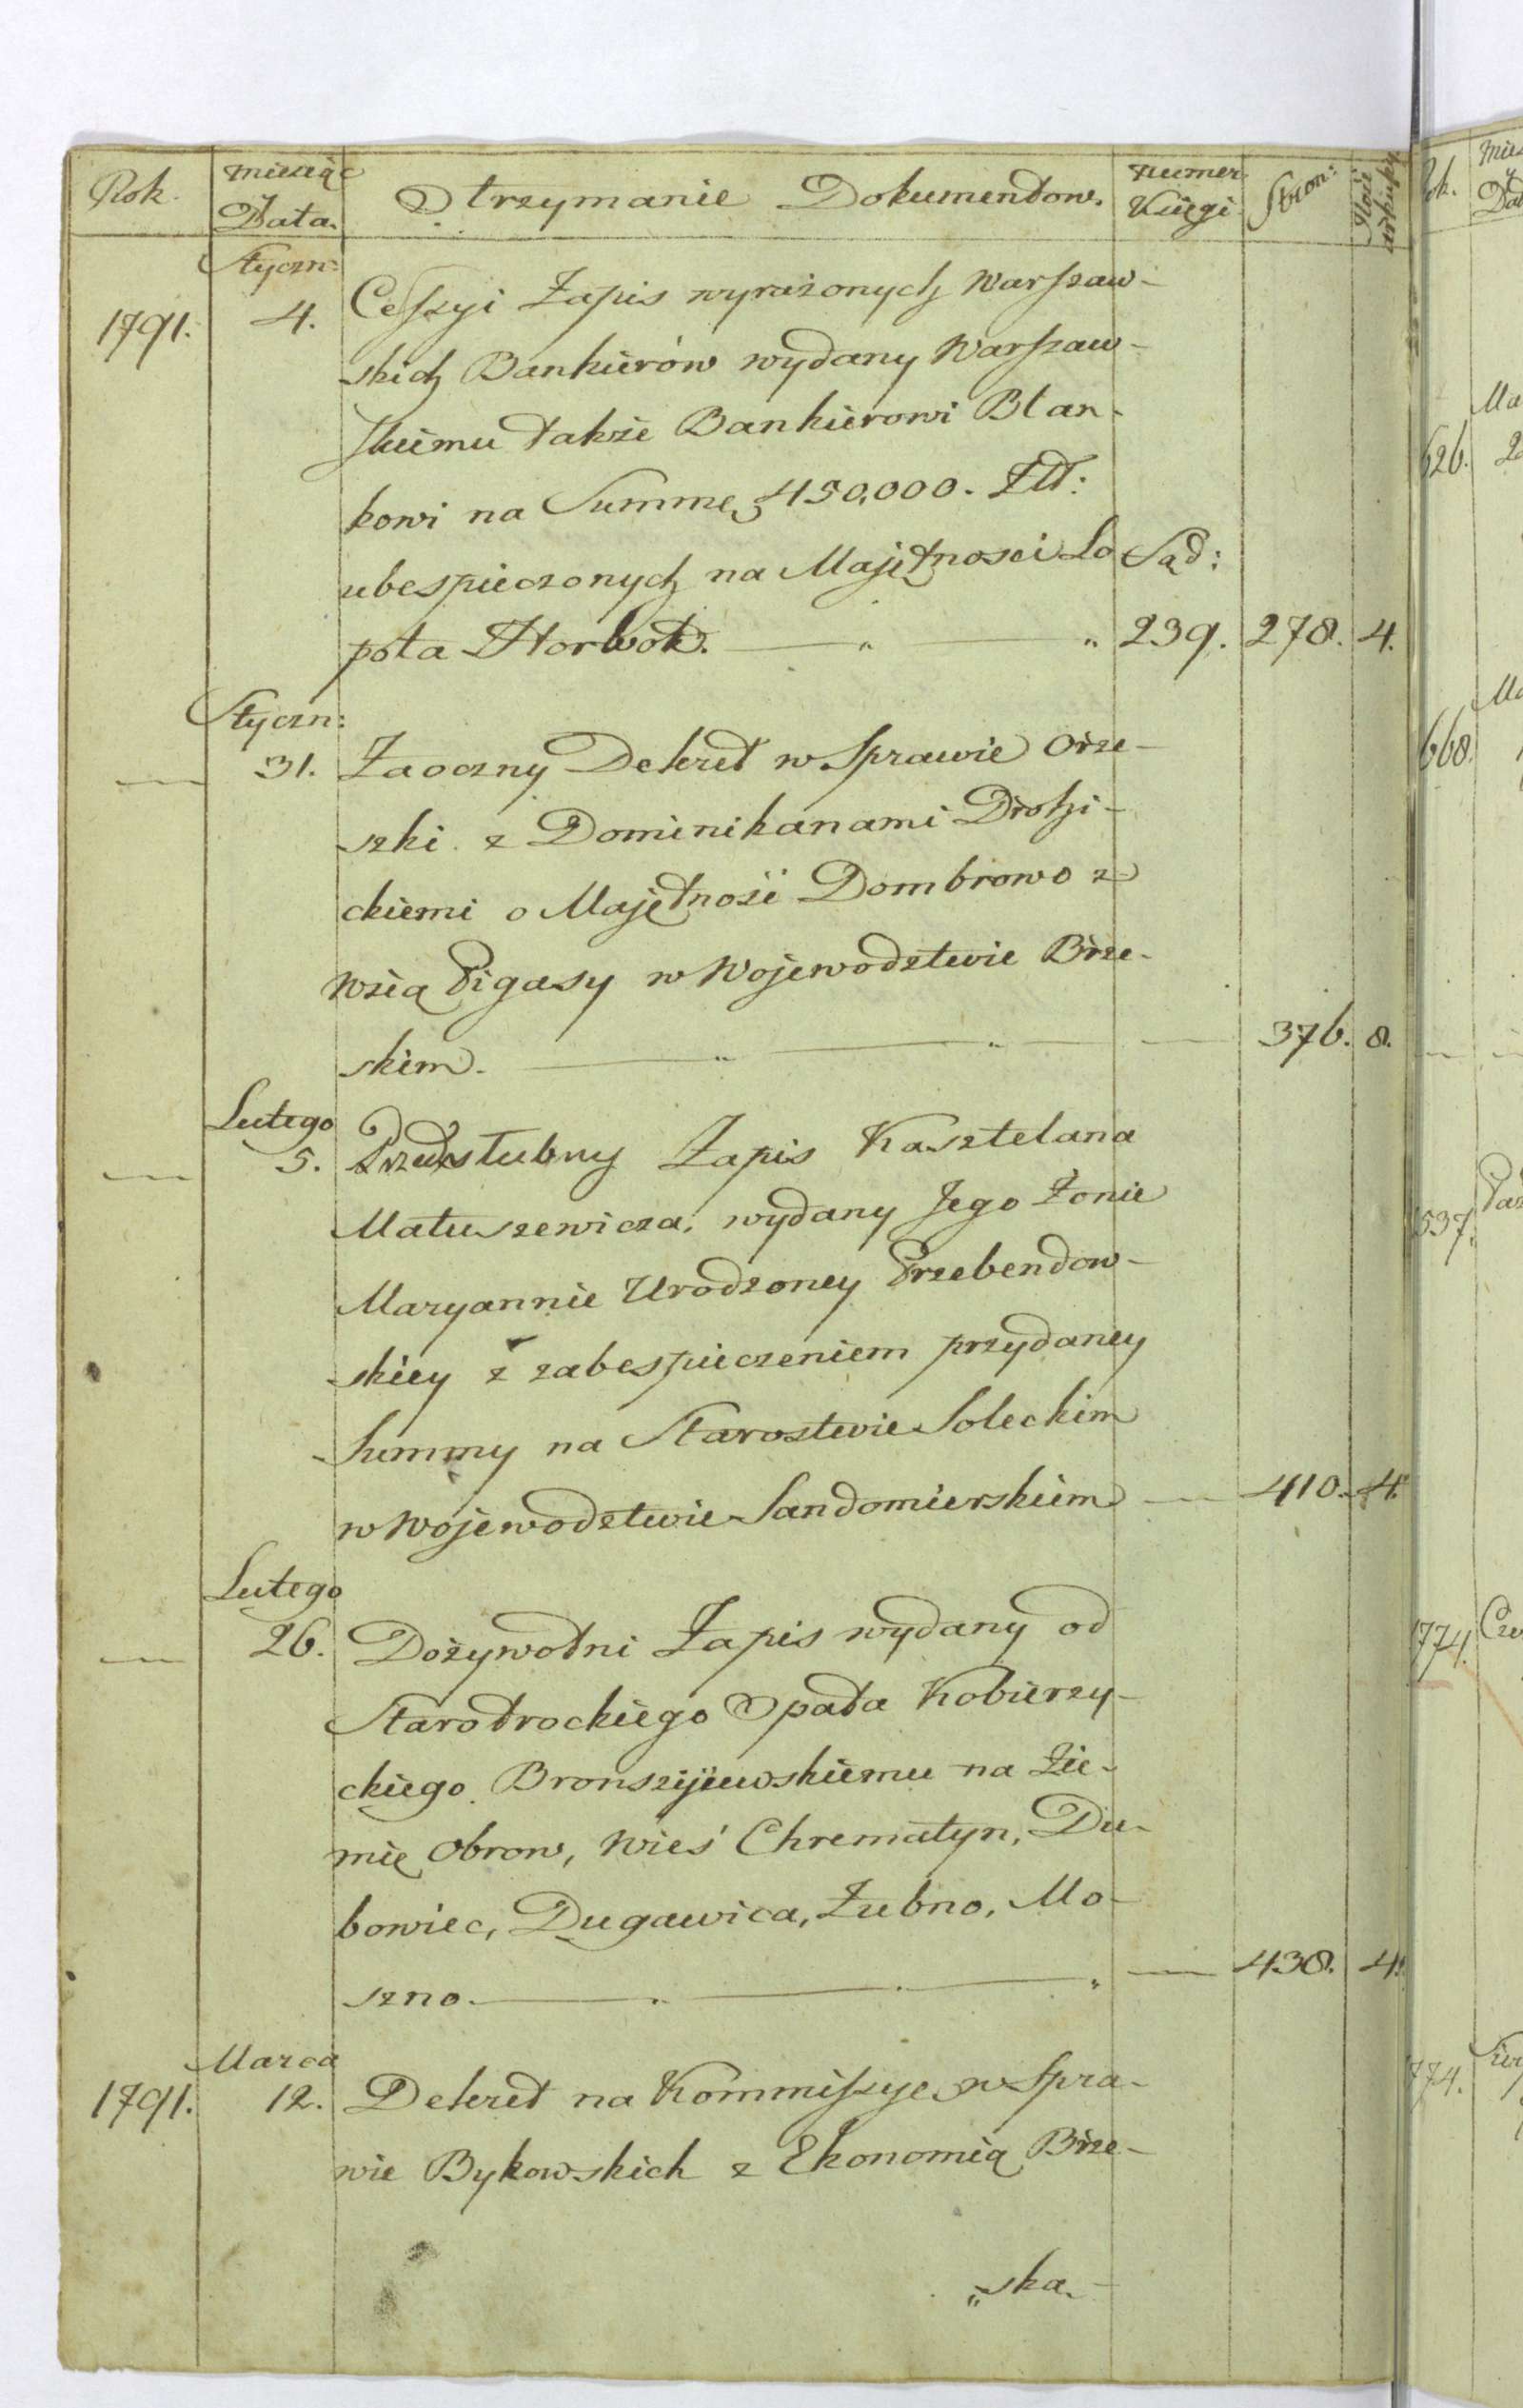 Rok. miesiąc y Data. Otrzymanie Dokumentow. numer Księgi Stron: Ilość arkuszy
Styczn:
1791. 4. Cessyi Zapis wyrażonych Warszaw-
skich Bankierów wydany Warszaw-
skiemu także Bankierowi Blan-
kowi na Summę 450,000. Złł:
ubespieczonych na Majętnosci Ło Sąd:
pota Horbow. 239. 278. 4.
Styczn:
31. Zaoczny Dekret w Sprawie Orze-
szki z Dominikanami Drohi-
ckiemi o Majętność Dombrowo z
Wsią Pigasy w Wojewodztwie Brze-
skim. 376. 8.
Lutego
5. Przedślubny Zapis Kasztelana
Matuszewicza, wydany Jego Żonie
Maryannie Urodzoney Przebendow-
skiey z zabespieczeniem przydaney
Summy na Starostwie Soleckim
w Wojewodztwie Sandomierskim 410. 4.
Lutego
26. Dożywotni Zapis wydany od
Starotrockiego Opata Kobierzy-
ckiego Bronszijewskiemu na Zie-
mię Obrow, Wieś Chrematyn, Du-
bowiec, Dugawica, Żubno, Mo-
szno. 438. 4.
Marca
1791. 12. Dekret na Kommissyę w Spra-
wie Bykowskich z Ekonomią Brze-
„ska.
Rok. Mies
y
Dat
Ma
626. 2
Ma
668.
1537. Paz
1774. Cze
774. Sier